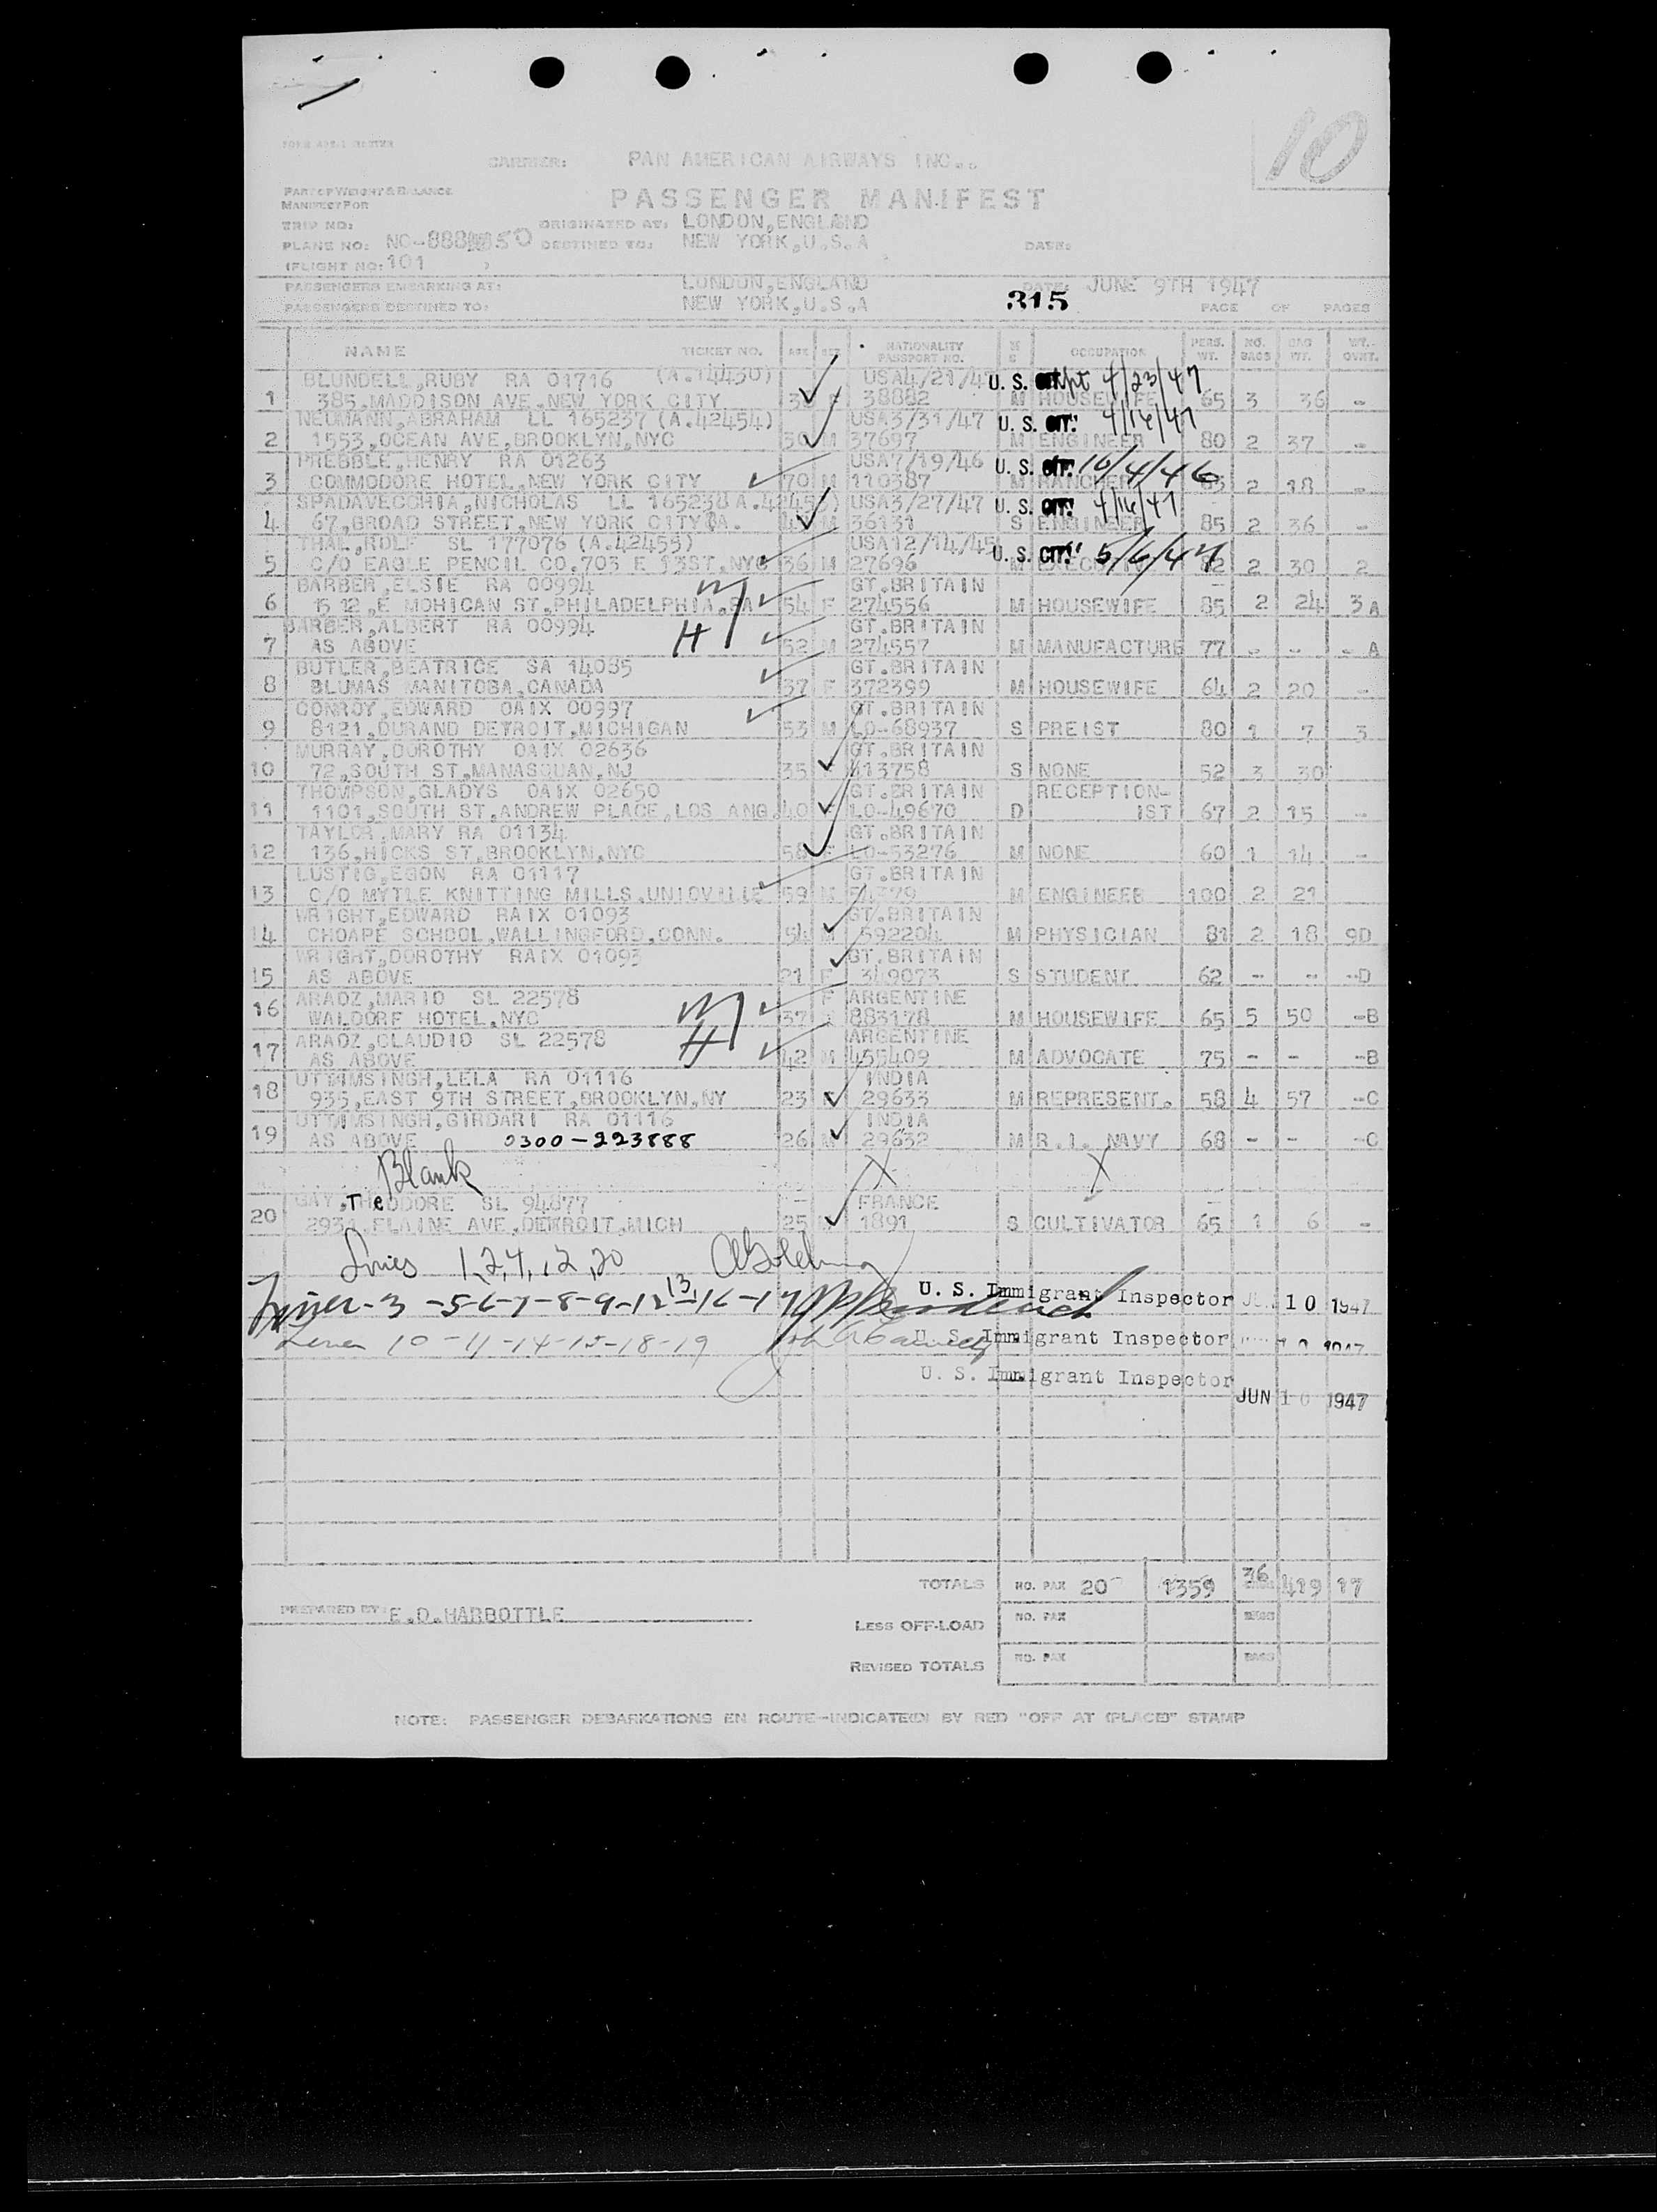 10
CARRIER: PAN AMERICAN AIRWAYS INC..
PART OF WEIGHT & BALANCE
MANIFEST FOR
PASSENGER MANIFEST
TRIP NO: ORIGINATED AT: LONDON,ENGLAND
PLANE NO: NC-888 50 DESTINED TO: NEW YORK,U.S.A DATE:
(FLIGHT NO: 101 )
PASSENGERS EMBARKING AT: LONDON,ENGLAND DATE: JUNE 9TH 1947
PASSENGERS DESTINED TO: NEW YORK,U.S.A 315 PAGE OF PAGES
NAME TICKET NO. AGE SEX NATIONALITY PASSPORT NO. M S OCCUPATION PERS. WT. NO. BAGS BAG WT. WT. OVHT.
BLUNDELL,RUBY RA 01716 (A.14450) USA4/21/47 U. S. 4/23/47
1 385,MADDISON AVE,NEW YORK CITY 38882 M HOUSEWIFE 65 3 36 -
NEUMANN,ABRAHAM LL 165237 (A.42454) USA3/31/47 U. S. CIT. 4/16/47
2 1553,OCEAN AVE,BROOKLYN,NYC 50 M 37697 M ENGINEER 80 2 37 -
PREBBLE,HENRY RA 01263 USA7/19/46 U. S. CIT. 10/4/46
3 COMMODORE HOTEL,NEW YORK CITY 70 M 110387 M RANCHER 2 18 -
SPADAVECCHIA,NICHOLAS LL 165238 USA3/27/47 U. S. CIT. 4/16/47
4 67,BROAD STREET,NEW YORK CITY M 36131 S ENGINEER 85 2 36 -
THAL,ROLF SL 177076 (A.42455) USA12/14/45 U. S. CIT. 5/6/47
5 C/O EAGLE PENCIL CO.703 E 13ST,NYC 36 M 27696 M 2 30 2
BARBER,ELSIE RA 00994 W GT.BRITAIN
6 1512,E MOHICAN ST.PHILADELPHIA,PA 54 F 274556 M HOUSEWIFE 85 2 24 3A
BARBER,ALBERT RA 00994 H GT.BRITAIN
7 AS ABOVE 52 M 274557 M MANUFACTURE 77 - -- - A
BUTLER,BEATRICE SA 14035 GT.BRITAIN
8 BLUMAS MANITOBA,CANADA 37 F 372399 M HOUSEWIFE 64 2 20 -
CONROY,EDWARD OAIX 00997 GT.BRITAIN
9 8121,DURAND DETROIT,MICHIGAN 53 M LO-68937 S PREIST 80 1 7 3
MURRAY,DOROTHY OAIX 02636 GT.BRITAIN
10 72,SOUTH ST,MANASQUAN,NJ 35 613758 S NONE 52 3 30
THOMPSON,GLADYS OAIX 02650 GT.BRITAIN RECEPTION-
11 1101,SOUTH ST.ANDREW PLACE,LOS ANG. 40 F LO-49670 D IST 67 2 15 -
TAYLOR,MARY RA 01134 GT.BRITAIN
12 136,HICKS ST,BROOKLYN,NYC 56 F LO-53276 M NONE 60 1 14 -
LUSTIG,EGON RA 01117 GT.BRITAIN
13 C/O MYTLE KNITTING MILLS,UNIOVILLE 59 M 54379 M ENGINEER 100 2 21
WRIGHT,EDWARD RAIX 01093 GT.BRITAIN
14 CHOAPE SCHOOL,WALLINGFORD,CONN. 54 M 592204 M PHYSICIAN 81 2 18 9D
WRIGHT,DOROTHY RAIX 01093 GT.BRITAIN
15 AS ABOVE 21 F 349073 S STUDENT 62 -- -- --D
ARAOZ,MARIO SL 22578 W F ARGENTINE
16 WALDORF HOTEL,NYC 37 883178 M HOUSEWIFE 65 5 50 --B
ARAOZ,CLAUDIO SL 22578 H ARGENTINE
17 AS ABOVE 42 M 455409 M ADVOCATE 75 - - --B
UTTAMSINGH,LELA RA 01116 INDIA
18 935,EAST 9TH STREET,BROOKLYN,NY 23 F 29633 M REPRESENT. 58 4 57 --C
UTTAMSINGH,GIRDARI RA 01116 INDIA
19 AS ABOVE 0300-223888 26 M 29632 M R.I. NAVY 68 - - --C
Blank X X
GAY,THEODORE SL 94877 FRANCE
20 2931,ELAINE AVE,DETROIT,MICH 25 1891 S CULTIVATOR 65 1 6 -
Lines 1,2,4,12,20
3-5-6-7-8-9-12-13-16-17 U. S. Immigrant Inspector JUN 10 1947
Lines 10-11-14-15-18-19 U. S. Immigrant Inspector 1947
U. S. Immigrant Inspector
JUN 10 1947
TOTALS NO. PAX 20 1359 36 419 17
PREPARED BY: E.D.HARBOTTLE
LESS OFF-LOAD NO. PAX BAGS
REVISED TOTALS NO. PAX BAGS
NOTE: PASSENGER DEBARKATIONS EN ROUTE-INDICATED BY RED "OFF AT (PLACE)" STAMP